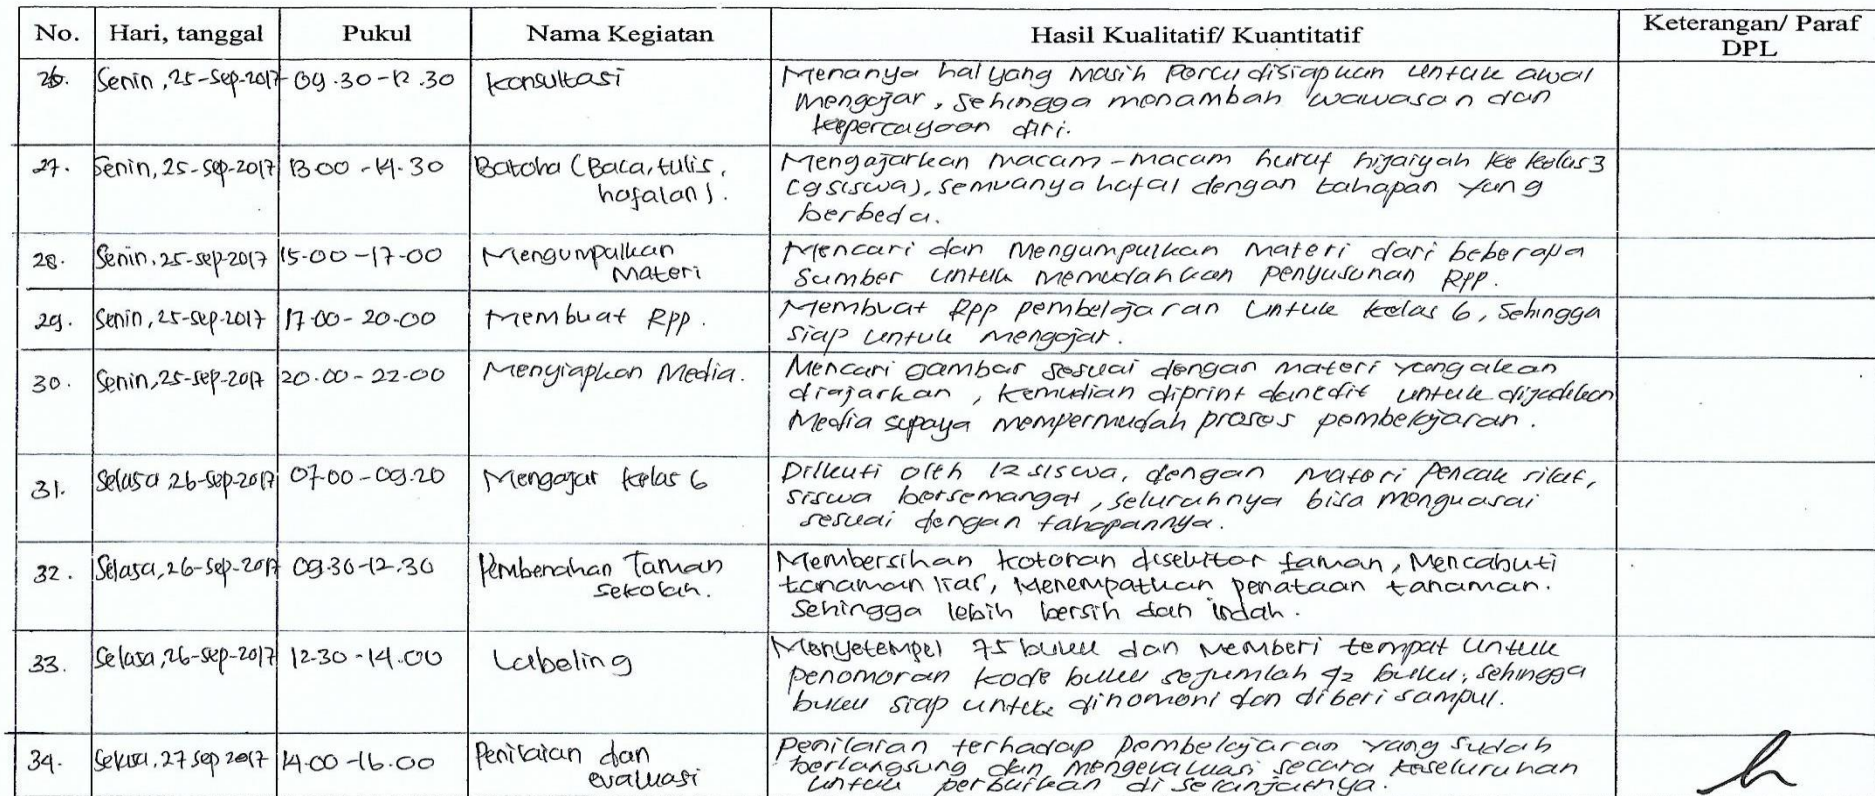 No. Hari, tanggal Pukul Nama Kegiatan Hasil Kualitatif/ Kuantitatif Keterangan/ Paraf DPL
26. Senin, 25-Sep-2017 09.30-12.30 Konsultasi Menanya hal yang masih perlu disiapkan untuk awal
mengajar, sehingga menambah wawasan dan
kepercayaan diri.
27. Senin, 25-Sep-2017 13.00-14.30 Batoha (Baca, tulis, Mengajarkan macam-macam huruf hijaiyah ke kelas 3
hafalan). (9 siswa), semuanya hafal dengan tahapan yang
berbeda.
28. Senin, 25-Sep-2017 15.00-17.00 Mengumpulkan Mencari dan Mengumpulkan Materi dari beberapa
Materi Sumber untuk memudahkan penyusunan RPP.
29. Senin, 25-Sep-2017 17.00-20.00 Membuat RPP. Membuat RPP pembelajaran untuk kelas 6, Sehingga
siap untuk mengajar.
30. Senin, 25-Sep-2017 20.00-22.00 Menyiapkan Media. Mencari gambar sesuai dengan materi yang akan
diajarkan, kemudian diprint dan edit untuk dijadikan
Media supaya mempermudah proses pembelajaran.
31. Selasa 26-Sep-2017 07.00-09.20 Mengajar kelas 6 Diikuti oleh 12 siswa, dengan materi pencak silat,
siswa bersemangat, seluruhnya bisa menguasai
sesuai dengan tahapannya.
32. Selasa, 26-Sep-2017 09.30-12.30 Pembenahan Taman Membersihan kotoran disekitar taman, Mencabuti
sekolah. tanaman liar, Menempatkan penataan tanaman.
Sehingga lebih bersih dan indah.
33. Selasa, 26-Sep-2017 12.30-14.00 Labeling Menyetempel 75 buku dan Memberi tempat untuk
penomoran kode buku sejumlah 92 buku, sehingga
buku siap untuk dinomori dan diberi sampul.
34. Selasa, 27 Sep 2017 14.00-16.00 Penilaian dan Penilaian terhadap pembelajaran yang sudah
evaluasi berlangsung dan mengevaluasi secara keseluruhan
untuk perbaikan di selanjutnya.